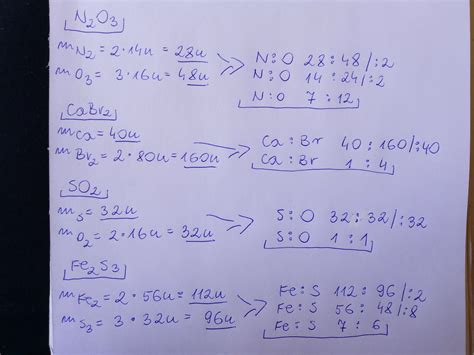 N₂O₃
mN₂ = 2·14u = 28u
mO₃ = 3·16u = 48u
N:O 28:48/:2
N:O 14:24/:2
N:O 7:12
CaBr₂
mCa = 40u
mBr₂ = 2·80u = 160u
Ca:Br 40:160/:40
Ca:Br 1:4
SO₂
mS = 32u
mO₂ = 2·16u = 32u
S:O 32:32/:32
S:O 1:1
Fe₂S₃
mFe₂ = 2·56u = 112u
mS₃ = 3·32u = 96u
Fe:S 112:96/:2
Fe:S 56:48/:8
Fe:S 7:6